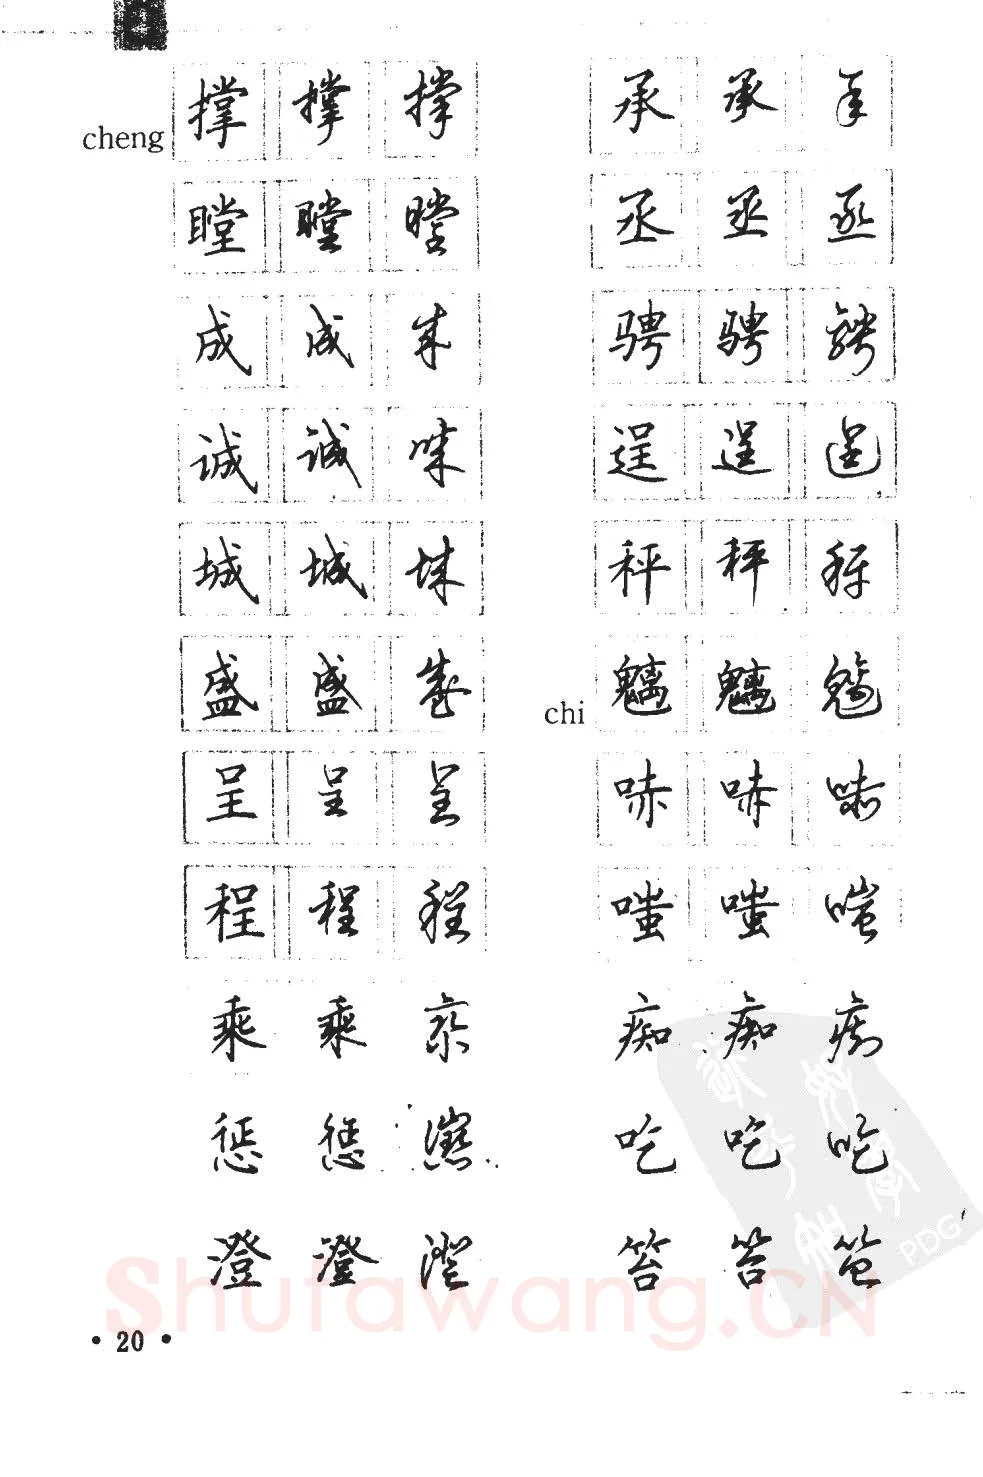 cheng 撑 撑 撑
瞠 瞠 瞠
成 成 成
诚 诚 诚
城 城 城
盛 盛 盛
呈 呈 呈
程 程 程
乘 乘 乘
惩 惩 惩
澄 澄 澄
承 承 承
丞 丞 丞
骋 骋 骋
逞 逞 逞
秤 秤 秤
chi 魑 魑 魑
哧 哧 哧
嗤 嗤 嗤
痴 痴 痴
吃 吃 吃
笞 笞 笞
• 20 •
Shufawang.CN
PDG